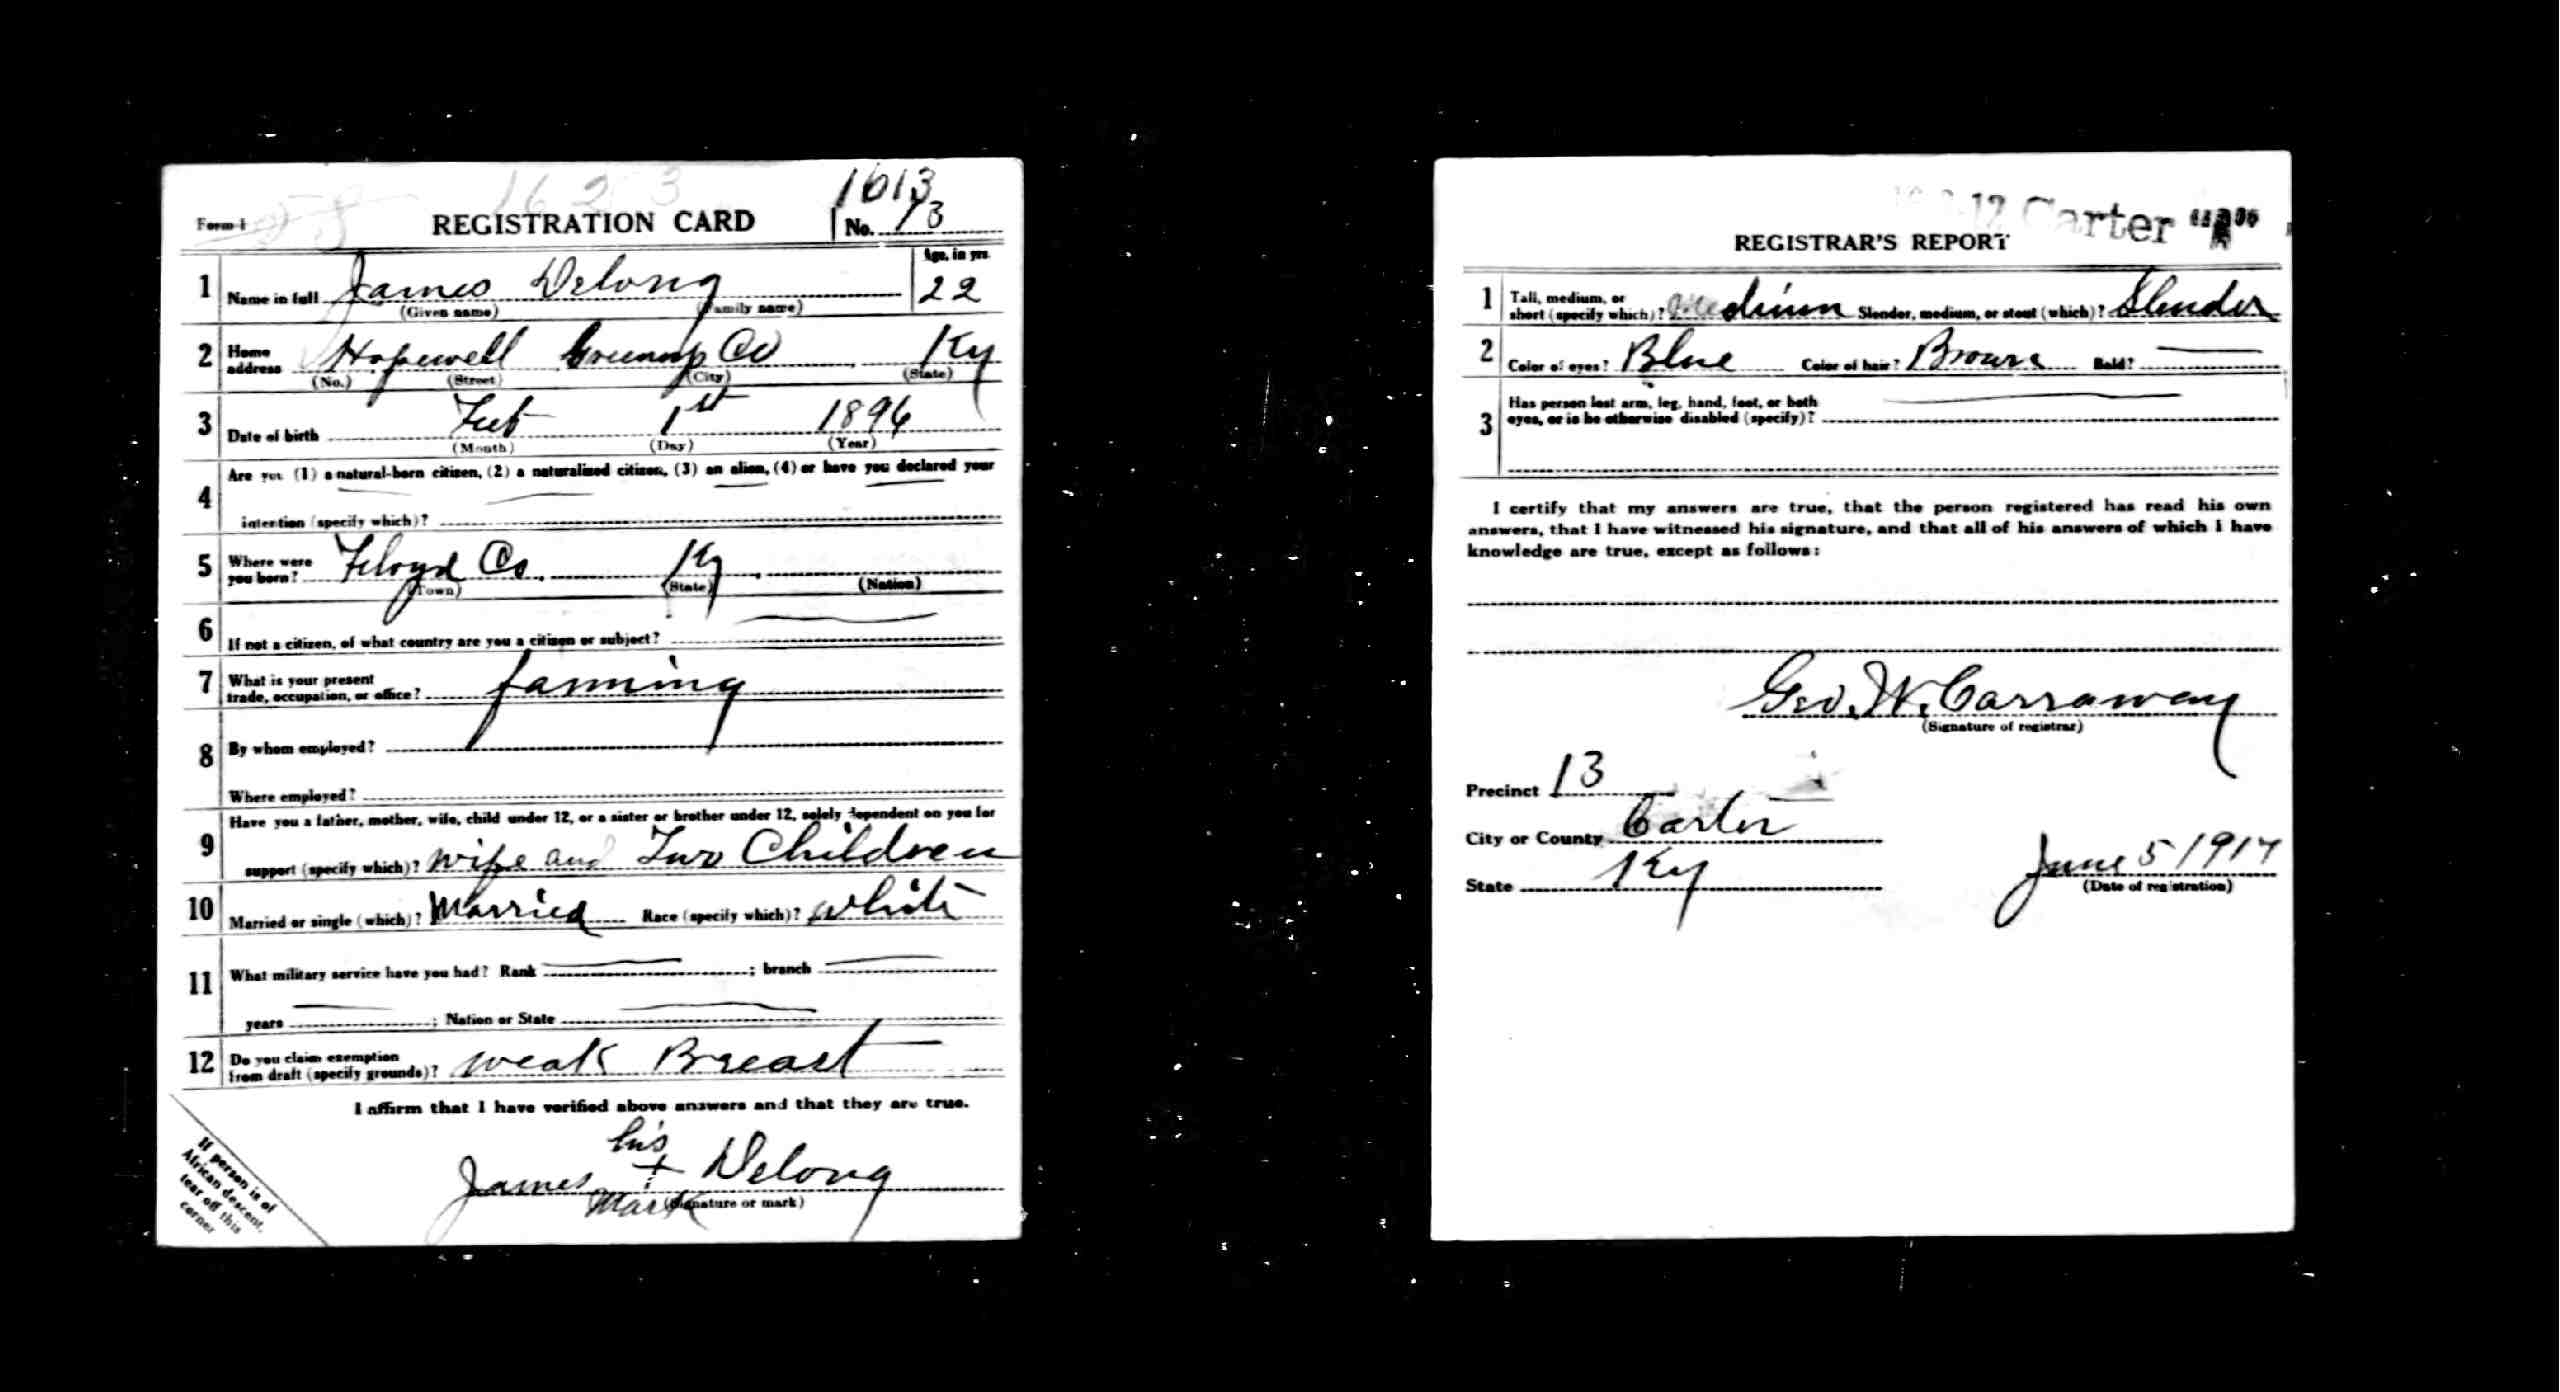 1623
1613
Form 1 REGISTRATION CARD No. 13
1 Name in full James Delong Age, in yrs. 22
(Given name) (Family name)
2 Home address Hopewell Greenup Co Ky
(No.) (Street) (City) (State)
3 Date of birth Feb 1st 1896
(Month) (Day) (Year)
4 Are you (1) a natural-born citizen, (2) a naturalized citizen, (3) an alien, (4) or have you declared your
intention (specify which)?
5 Where were you born? Floyd Co, Ky
(Town) (State) (Nation)
6 If not a citizen, of what country are you a citizen or subject?
7 What is your present trade, occupation, or office? farming
8 By whom employed?
Where employed?
9 Have you a father, mother, wife, child under 12, or a sister or brother under 12, solely dependent on you for
support (specify which)? wife and Two Children
10 Married or single (which)? Married Race (specify which)? white
11 What military service have you had? Rank ; branch
years ; Nation or State
12 Do you claim exemption from draft (specify grounds)? weak Breast
I affirm that I have verified above answers and that they are true.
his
James + Delong
Mark (Signature or mark)
If person is of
African descent,
tear off this
corner
Carter
REGISTRAR'S REPORT
1 Tall, medium, or short (specify which)? Medium Slender, medium, or stout (which)? Slender
2 Color of eyes? Blue Color of hair? Brown Bald?
3 Has person lost arm, leg, hand, foot, or both
eyes, or is he otherwise disabled (specify)?
I certify that my answers are true, that the person registered has read his own
answers, that I have witnessed his signature, and that all of his answers of which I have
knowledge are true, except as follows:
Geo. W. Carraway
(Signature of registrar)
Precinct 13
City or County Carter
State Ky June 5 1917
(Date of registration)